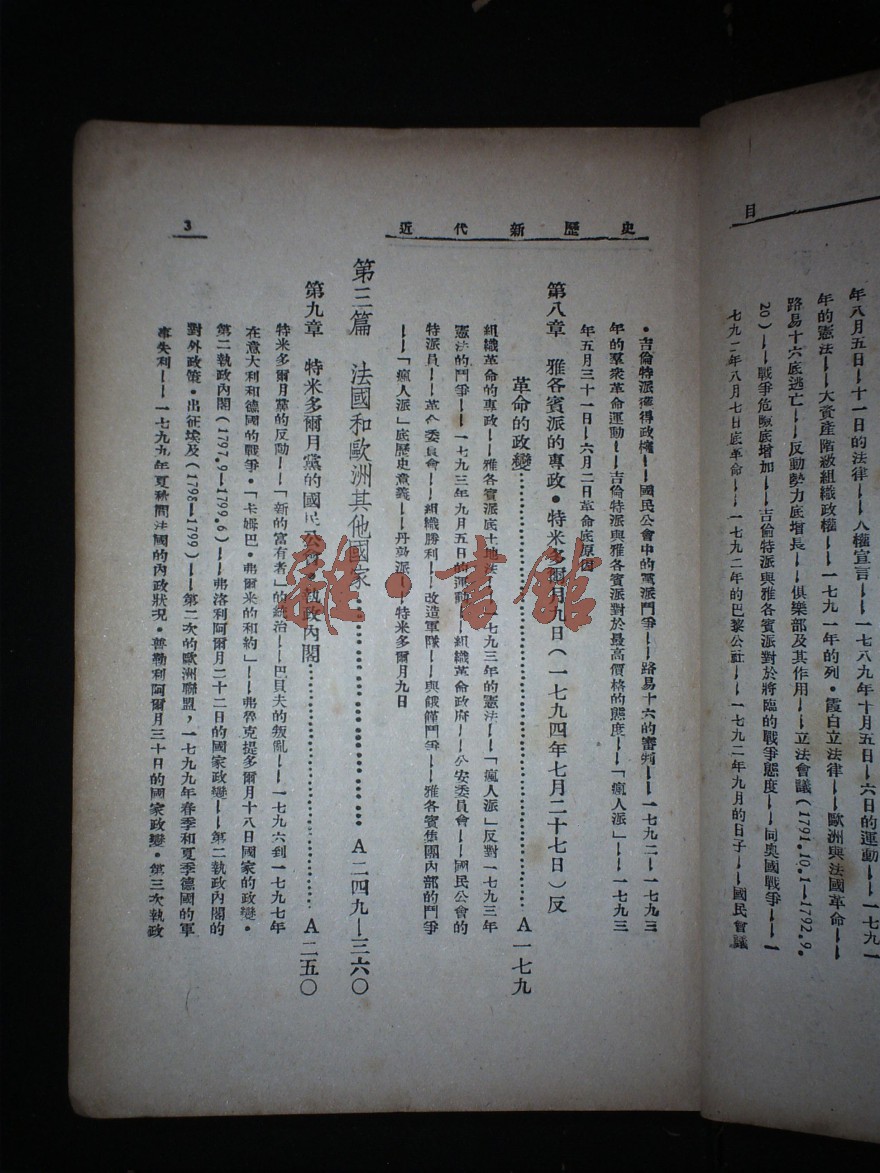 目
年八月五日——十一日的法律——人權宣言——一七八九年十月五日——六日的運動
年的憲法——大資產階級組織政權——一七九一年的列•霞白立法律——歐洲與法國革命——
路易十六底逃亡——反動勢力底增長——俱樂部及其作用——立法會議(1791.10.1—1792.9.
20)——戰爭危險底增加——吉倫特派與雅各賓派對於將臨的戰爭態度——同奧國戰爭——一
七九二年八月七日底革命——一七九二年的巴黎公社——一七九二年九月的日子——國民會議
近代新歷史
3
•吉倫特派獲得政權——國民公會中的黨派鬥爭——路易十六的審判——一七九二——一七九三
年的羣衆革命運動——吉倫特派與雅各賓派對於最高價格的態度——「瘋人派」——一七九三
年五月三十一日——六月二日革命底原因
第八章 雅各賓派的專政•特米多爾月九日(一七九四年七月二十七日)反
革命的政變……A一七九
組織革命的專政——雅各賓派底土地法——一七九三年的憲法——「瘋人派」反對一七九三年
憲法的鬥爭——一七九三年九月五日的運動——組織革命政府——公安委員會——國民公會的
特派員——革命委員會——組織勝利——改造軍隊——與饑饉鬥爭——雅各賓集團內部的鬥爭
——「瘋人派」底歷史意義——丹敦派——特米多爾月九日
第三篇 法國和歐洲其他國家……A二四九—三六〇
第九章 特米多爾月黨的國民公會•執政內閣……A二五〇
特米多爾月黨的反動——「新的富有者」的統治——巴貝夫的叛亂——一七九六到一七九七年
在意大利和德國的戰爭•「卡姆巴•弗爾米的和約」——弗魯克提多爾月十八日國家的政變•
第二執政內閣(1797.9—1799.6)——弗洛利阿爾月二十二日的國家政變——第二執政內閣的
對外政策•出征埃及(1798—1799)——第二次的歐洲聯盟,一七九九年春季和夏季德國的軍
事失利——一七九九年夏秋間法國的內政狀况•普勒利阿爾月三十日的國家政變•第三次執政
雜•書館